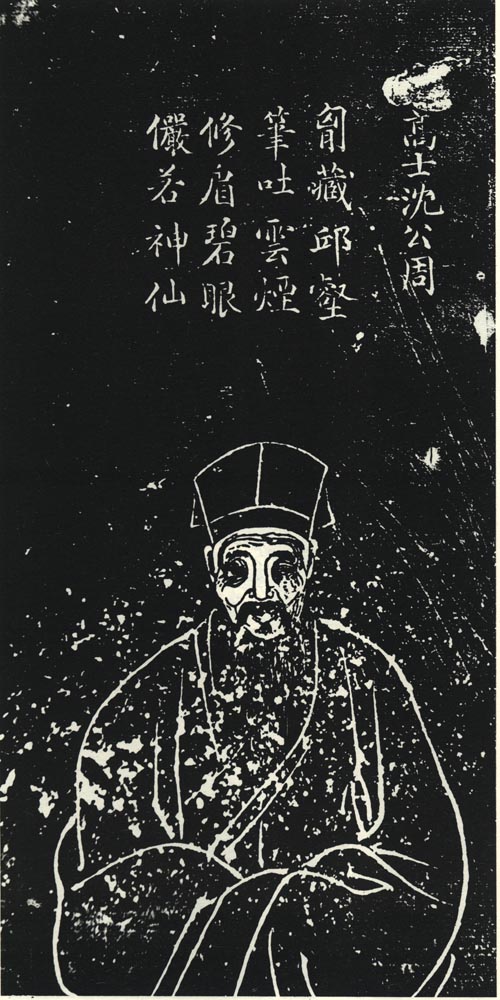 高士沈公周
匈藏邱壑
筆吐雲煙
修眉碧眼
儼若神仙